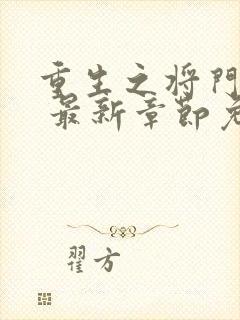 重生之将門
最新章節免
翟方